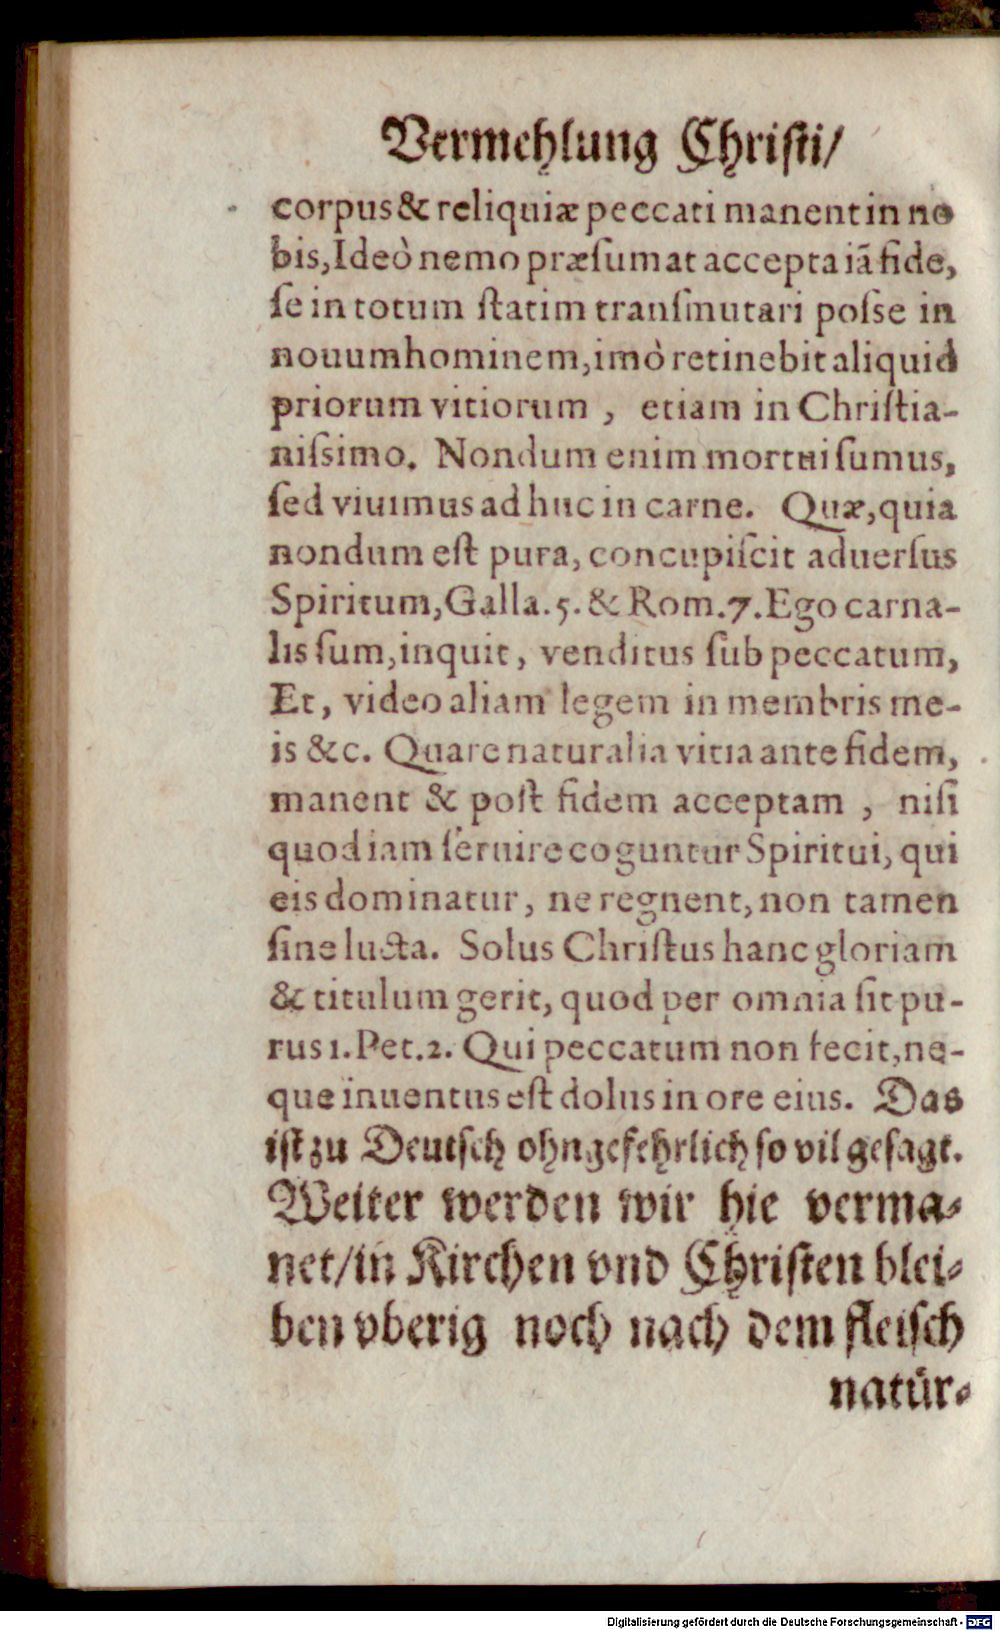 Vermehlung Christi/
corpus & reliquiæ peccati manent in no
bis, Ideò nemo præsumat accepta iã fide,
ſe in totum ſtatim tranſmutari poſse in
nouum hominem, imò retinebit aliquid
priorum vitiorum , etiam in Chriſtia-
niſsimo. Nondum enim mortui ſumus,
ſed viuimus ad huc in carne. Quæ, quia
nondum eſt pura, concupiſcit aduerſus
Spiritum, Galla. 5. & Rom. 7. Ego carna-
lis ſum, inquit, venditus ſub peccatum,
Et, video aliam legem in membris me-
is &c. Quare naturalia vitia ante fidem,
manent & poſt fidem acceptam , niſi
quod iam ſeruire coguntur Spiritui, qui
eis dominatur, ne regnent, non tamen
ſine lucta. Solus Chriſtus hanc gloriam
& titulum gerit, quod per omnia ſit pu-
rus 1. Pet. 2. Qui peccatum non fecit, ne-
que inuentus eſt dolus in ore eius. Das
iſt zu Deutſch ohngefehrlich ſo vil geſagt.
Weiter werden wir hie verma-
net/in Kirchen vnd Chriſten blei-
ben vberig noch nach dem fleiſch
natür-
Digitalisierung gefördert durch die Deutsche Forschungsgemeinschaft - DFG